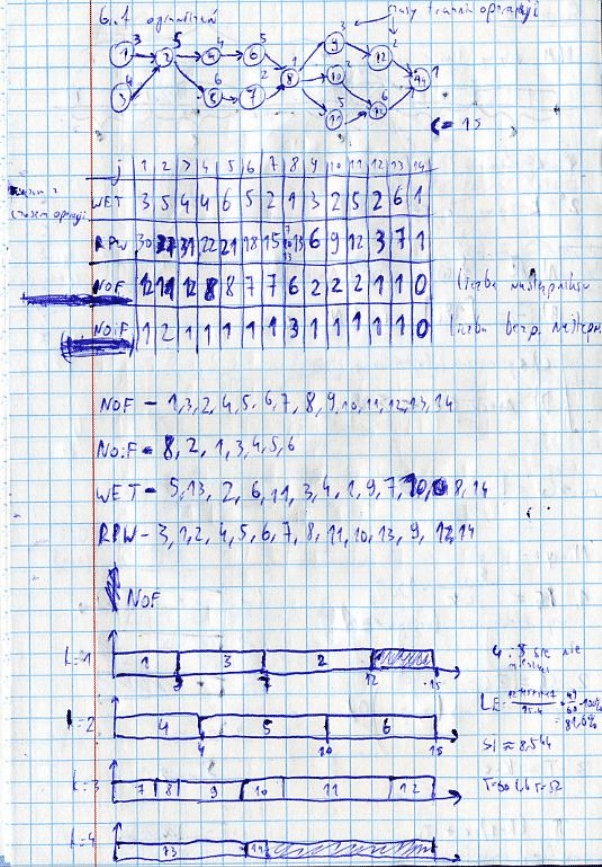 6.1 ograniczeń
czasy trwania operacji
3 5 4 5 3 2
1 2 4 6 9 12
4 6 2 1 2 1
3 5 7 8 10 14
5 6
11 13
C = 15
j 1 2 3 4 5 6 7 8 9 10 11 12 13 14
czasem operacji
WET 3 5 4 4 6 5 2 1 3 2 5 2 6 1
RPW 30 27 31 22 21 18 15 13 6 9 12 3 7 1
NOF 12 11 12 8 8 7 7 6 2 2 2 1 1 0 liczba następników
NOiF 1 2 1 1 1 1 1 3 1 1 1 1 1 0 liczba bezp. następn
NOF - 1,3,2,4,5,6,7,8,9,10,11,12,13,14
NOiF = 8,2,1,3,4,5,6
WET - 5,13,2,6,11,3,4,1,9,7,10, 8,14
RPW - 3,1,2,4,5,6,7,8,11,10,13,9,12,14
NOF
k=1 1 3 2
3 7 12 15
4 i 5 się nie
LE = 49/60 · 100%
= 81,6%
k=2 4 5 6
4 10 15
SI ≈ 8,544
k=3 7 8 9 10 11 12
k=4 13 14